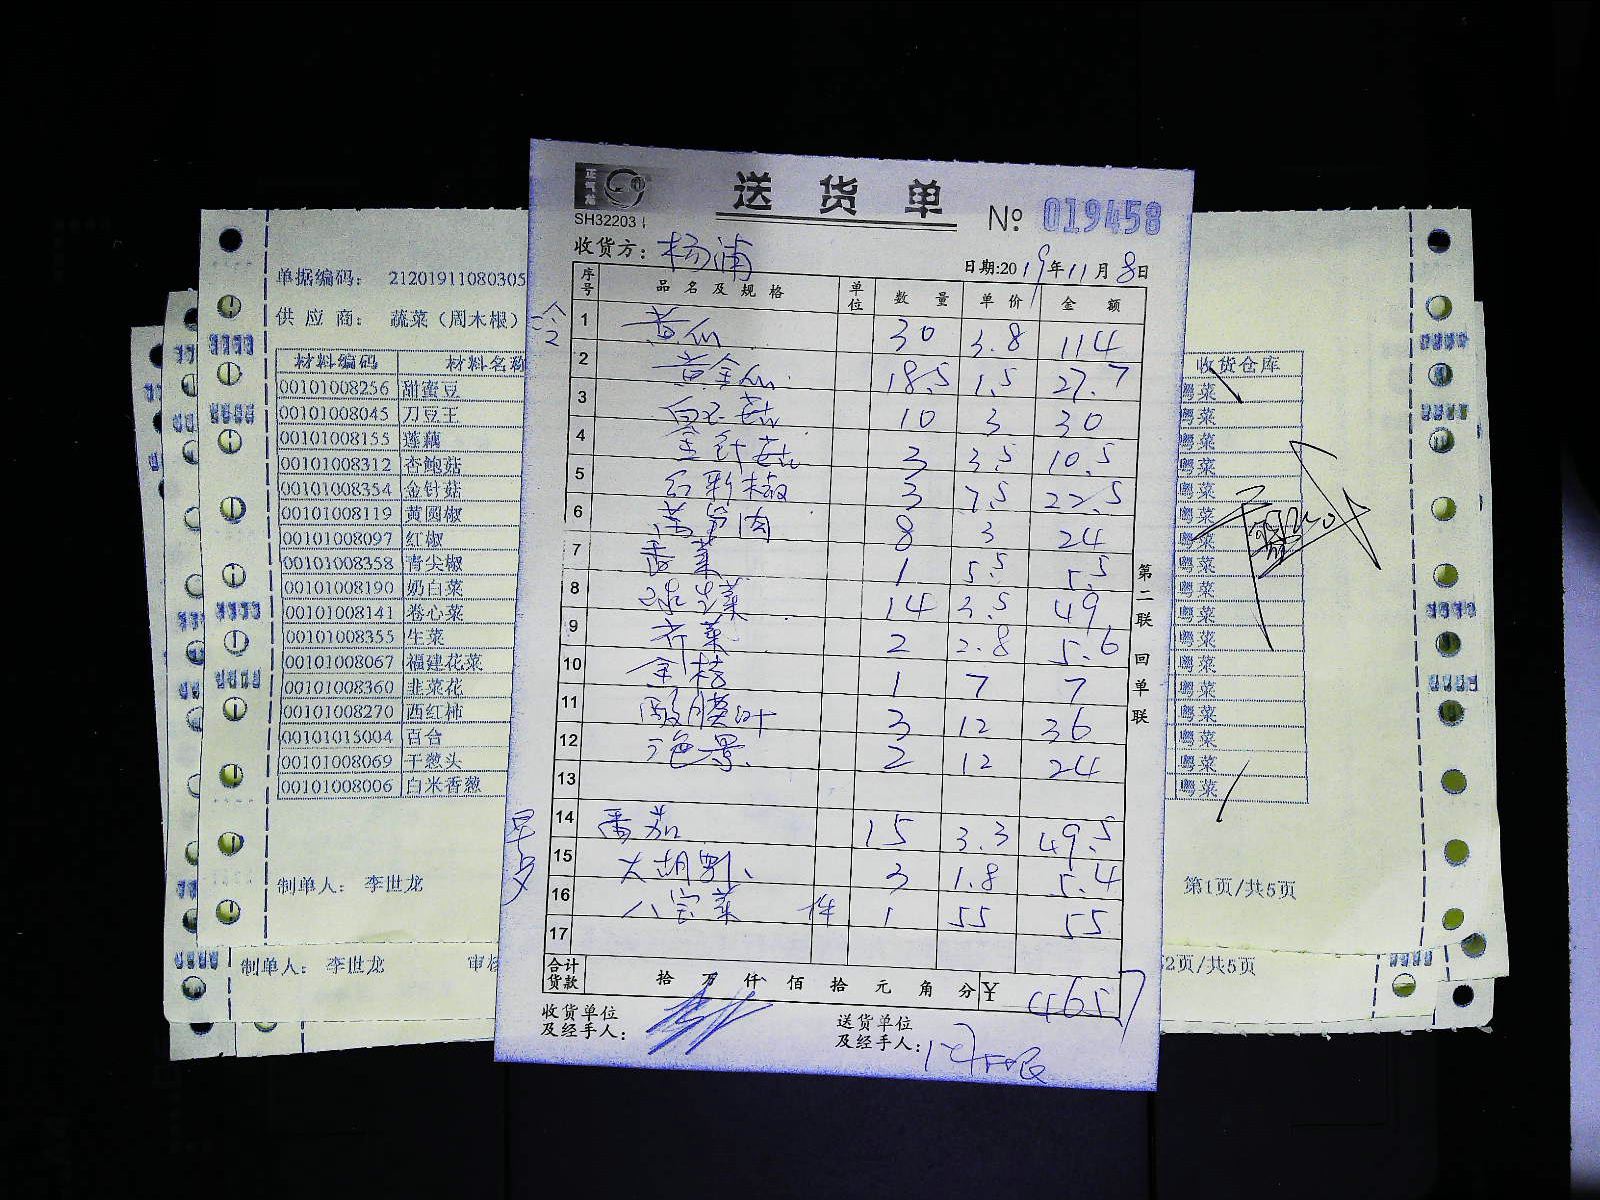 正气龙
SH32203
送货单
№ 019458
收货方：杨浦
日期:2019年11月8日
序号 品名及规格 单位 数量 单价 金额
1 黄瓜 30 3.8 114
2 黄金瓜 18.5 1.5 27.7
3 白玉菇 10 3 30
4 金针菇 3 3.5 10.5
5 红彩椒 3 7.5 22.5
6 8 3 24
7 香菜 1 5.5 5.5
8 球生菜 14 3.5 49
9 齐菜 2 2.8 5.6
10 金桔 1 7 7
11 酸膜叶 3 12 36
12 2 12 24
13
14 番茄 15 3.3 49.5
15 大胡 3 1.8 5.4
16 八宝菜 件 1 55 55
17
合计货款 拾万仟佰拾元角分 ¥ 465.7
收货单位及经手人：
送货单位及经手人：
第二联 回单联
单据编码： 21201911080305
供应商： 蔬菜（周木根）
材料编码 材料名称 收货仓库
00101008256 甜蜜豆 粤菜
00101008045 刀豆王 粤菜
00101008155 莲藕 粤菜
00101008312 杏鲍菇 粤菜
00101008354 金针菇 粤菜
00101008119 黄圆椒 粤菜
00101008097 红椒 粤菜
00101008358 青尖椒 粤菜
00101008190 奶白菜 粤菜
00101008141 卷心菜 粤菜
00101008355 生菜 粤菜
00101008067 福建花菜 粤菜
00101008360 韭菜花 粤菜
00101008270 西红柿 粤菜
00101015004 百合 粤菜
00101008069 干葱头 粤菜
00101008006 白米香葱 粤菜
制单人： 李世龙
第1页/共5页
制单人： 李世龙
审核
2页/共5页